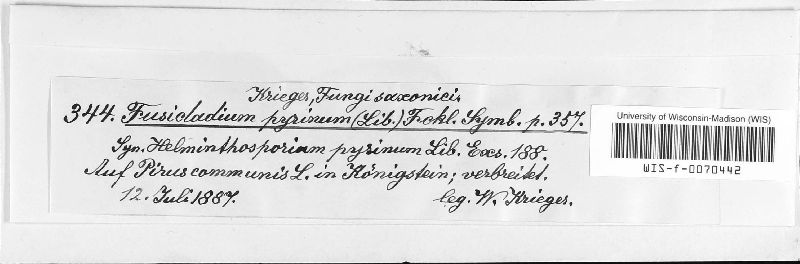 Krieger, Fungi saxonici.
344. Fusicladium pyrinum (Lib.) Fckl. Symb. p. 357.
Syn. Helminthosporium pyrinum Lib. Exs. 188.
Auf Pirus communis L. in Königstein; verbreitet.
12. Juli 1887. leg. W. Krieger.
University of Wisconsin-Madison (WIS)
WIS-f-0070442